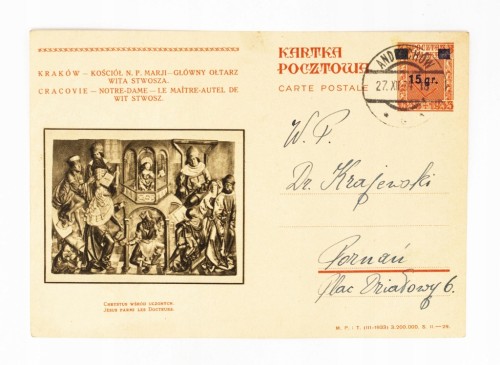 KRAKÓW — KOŚCIÓŁ N. P. MARJI— GŁÓWNY OŁTARZ
WITA STWOSZA.
CRACOVIE — NOTRE-DAME — LE MAÎTRE-AUTEL DE
WIT STWOSZ.
CHRYSTUS WŚRÓD UCZONYCH.
JÉSUS PARMI LES DOCTEURS.
KARTKA
POCZTOWA
CARTE POSTALE
15 gr.
27. XI
W. P.
Dr. Krajewski
Poznań
Plac Działowy 6.
M. P. i T. (III-1933) 3.200.000. S. II —